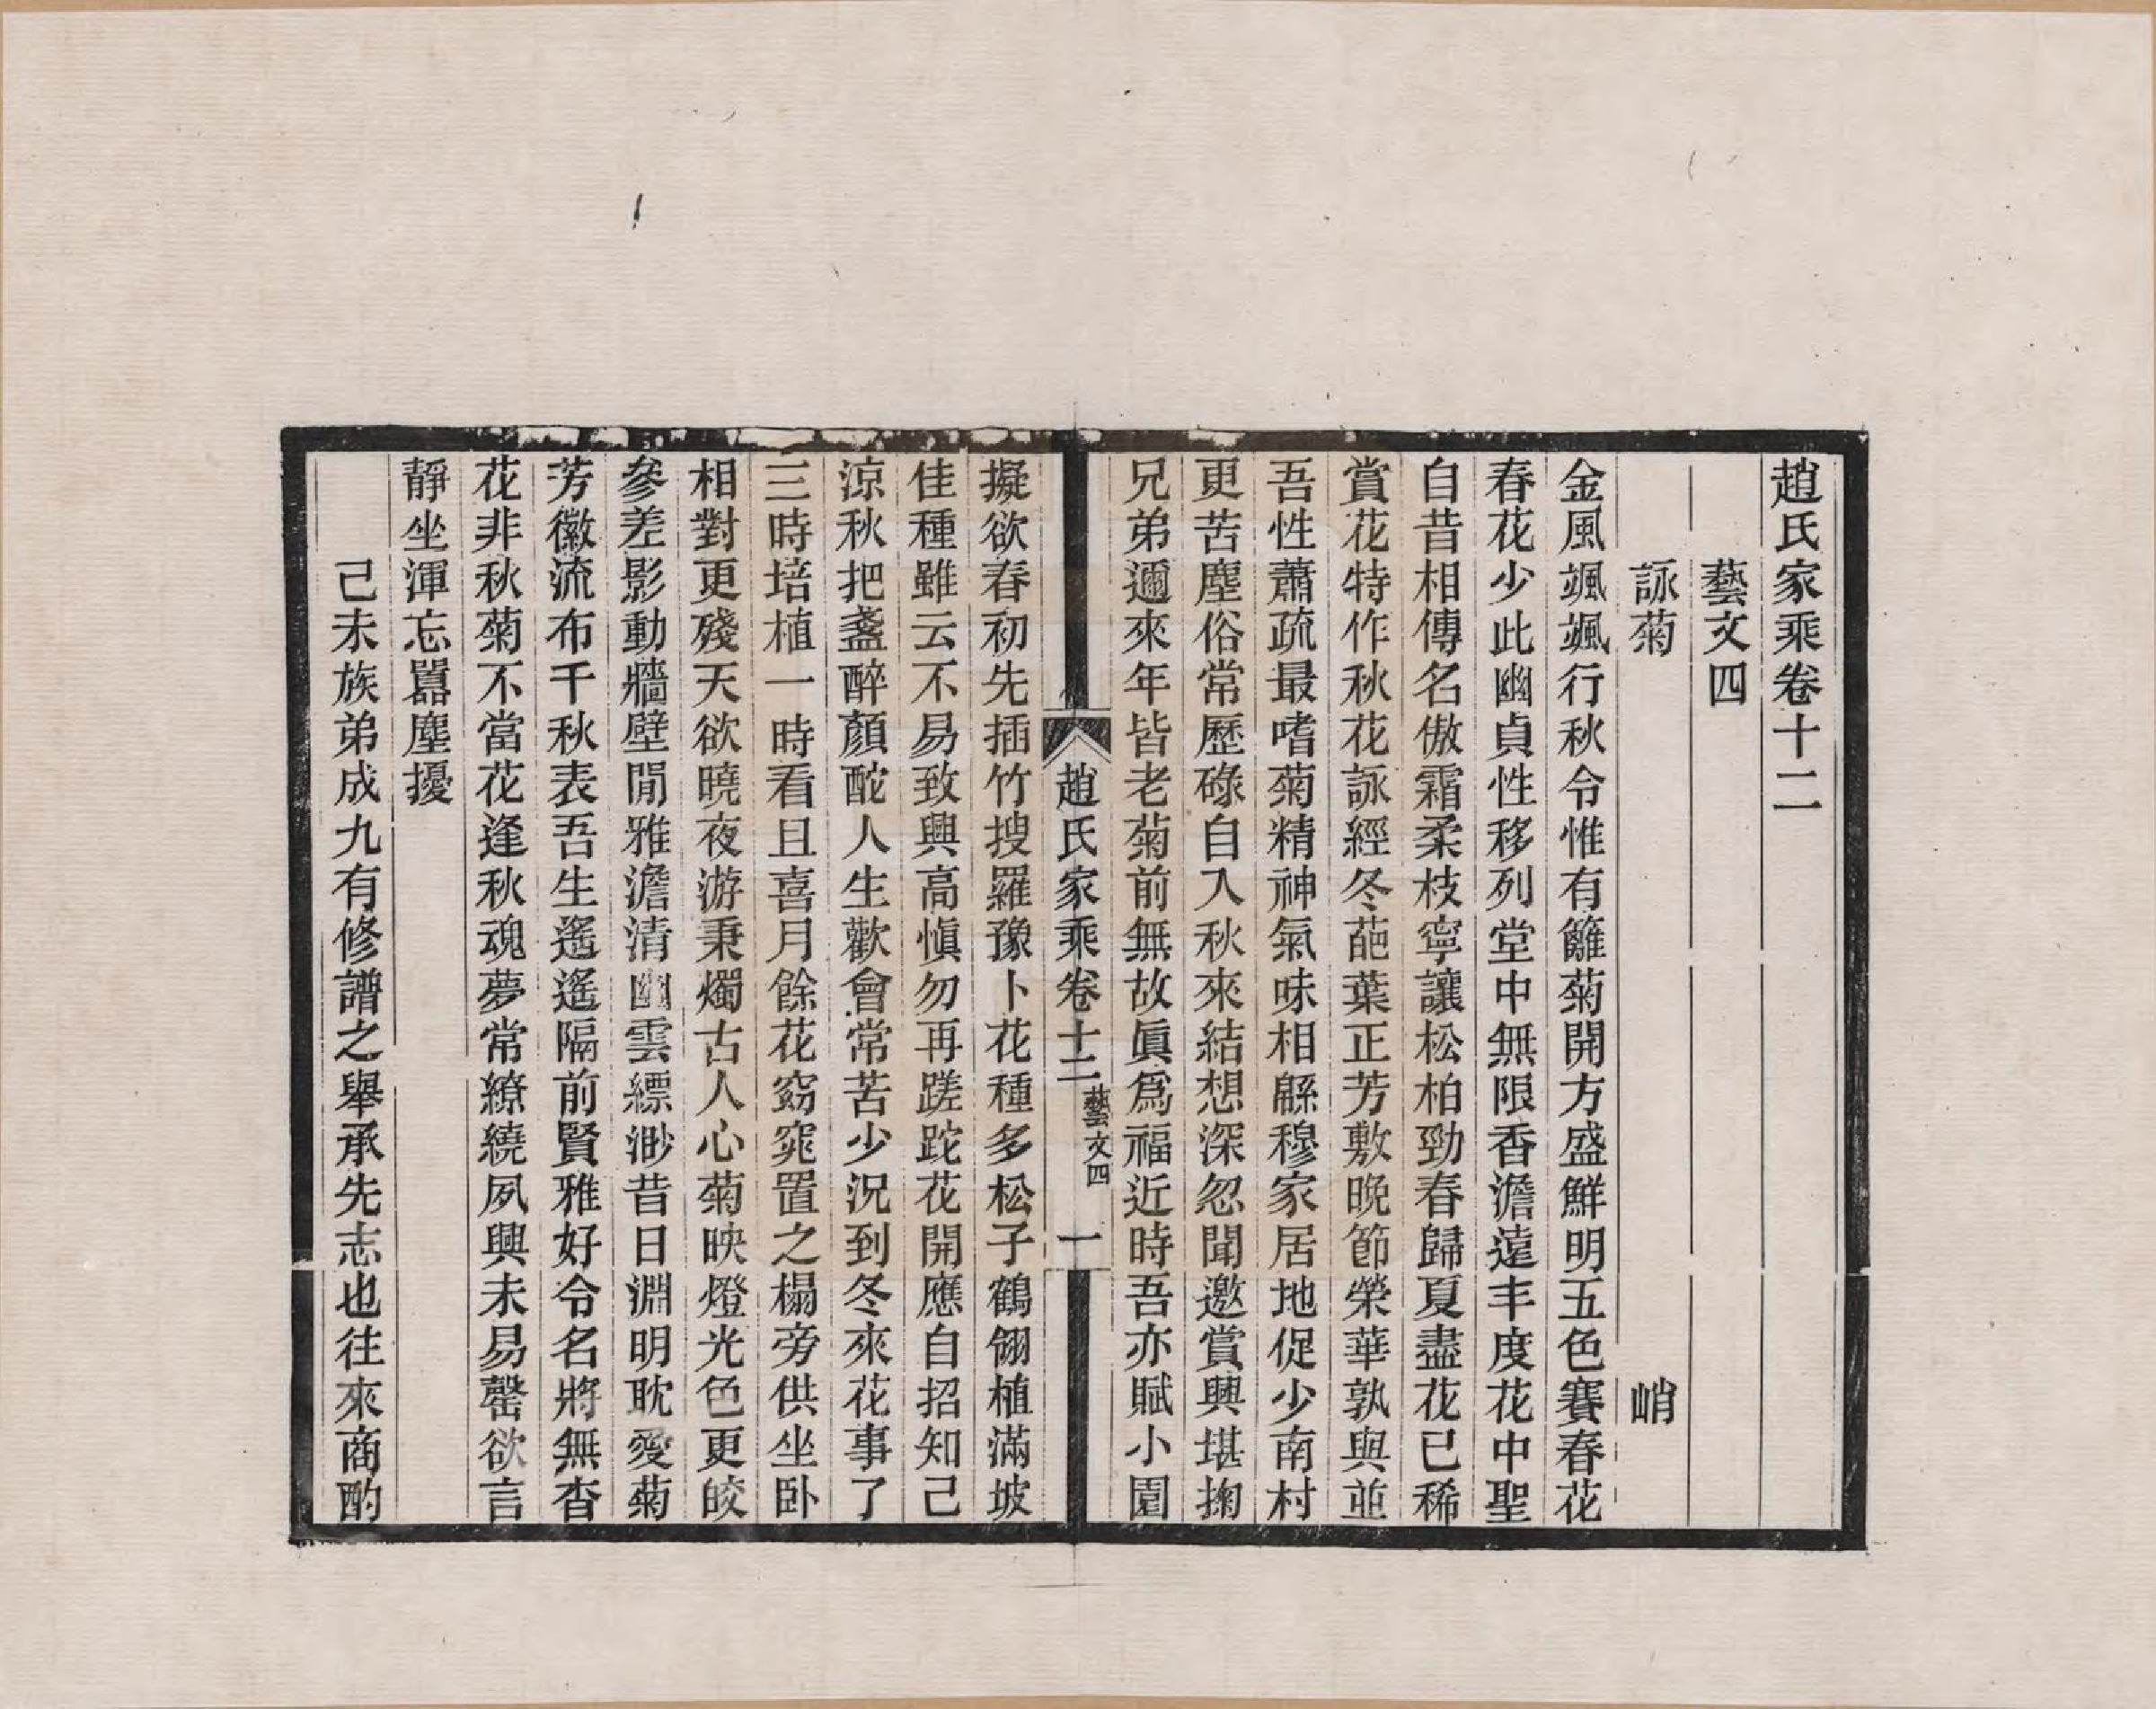 趙氏家乘卷十二
藝文四
詠菊 峭
金風颯颯行秋令惟有籬菊開方盛鮮明五色賽春花
春花少此幽貞性移列堂中無限香澹遠丰度花中聖
自昔相傳名傲霜柔枝寧讓松柏勁春歸夏盡花已稀
賞花特作秋花詠經冬葩葉正芳敷晚節榮華孰與並
吾性蕭疏最嗜菊精神氣味相緜穆家居地促少南村
更苦塵俗常歷碌自入秋來結想深忽聞邀賞興堪掬
兄弟邇來年皆老菊前無故眞爲福近時吾亦賦小園
趙氏家乘卷十二 藝文四 一
擬欲春初先插竹搜羅豫卜花種多松子鶴翎植滿坡
佳種雖云不易致興高愼勿再蹉跎花開應自招知己
涼秋把盞醉顏酡人生歡會常苦少況到冬來花事了
三時培植一時看且喜月餘花窈窕置之榻旁供坐臥
相對更殘天欲曉夜游秉燭古人心菊映燈光色更皎
參差影動牆壁閒雅澹清幽雲縹渺昔日淵明耽愛菊
芳徽流布千秋表吾生遙遙隔前賢雅好令名將無杳
花非秋菊不當花逢秋魂夢常繚繞夙興未易罄欲言
靜坐渾忘囂塵擾
己未族弟成九有修譜之舉承先志也往來商酌